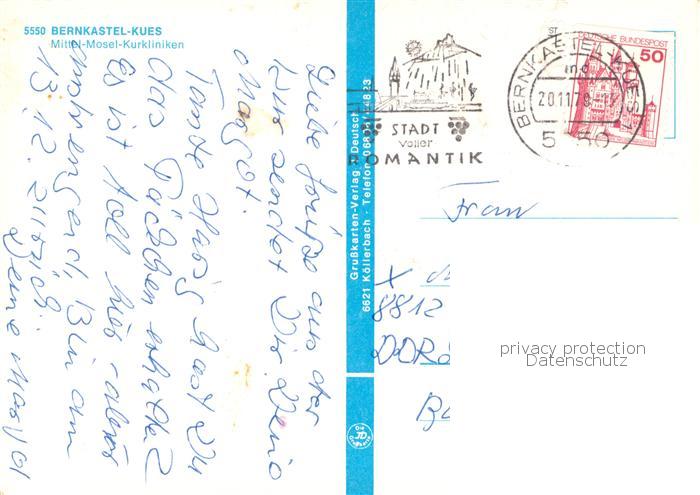 5550 BERNKASTEL-KUES
Mittel-Mosel-Kurkliniken
Liebe Grüße aus der
Kur sendet Dir Deine
Margot.
Tante Hast Du
das Päckchen erhalten?
Es ist toll hier aber
anstrengend, Bin am
13.12. zurück.
Deine Margot
Grußkarten-Verlag
6621 Köllerbach · Telefon
STADT
voller
ROMANTIK
BERNKASTEL-KUES
20.11.79
DEUTSCHE BUNDESPOST
50
Frau
8812
DDR
privacy protection
Datenschutz